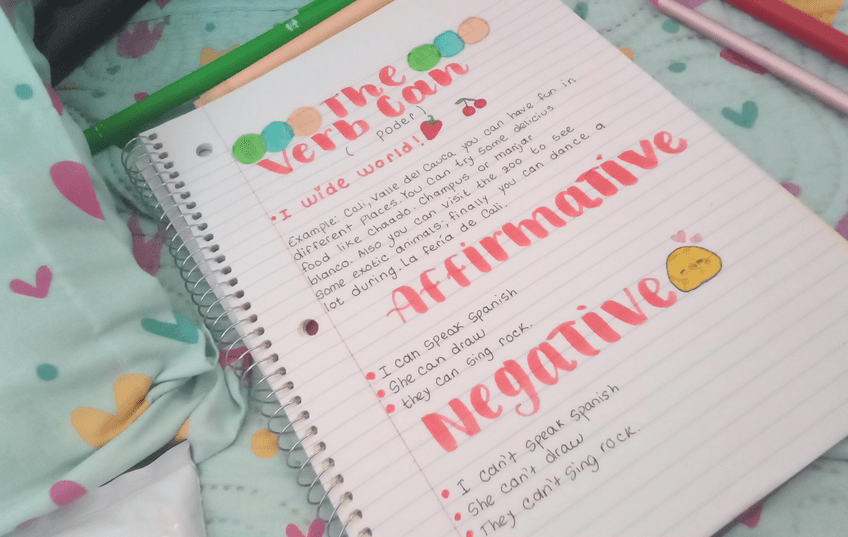 The
Verb Can
( poder )
• I wide world!
Example: Cali, Valle del Cauca, you can have fun in
different places. You Can try some delicius
food like chaado. Champus or marjar
blanco. Also you can visit the zoo to see
some exotic animals, finally you can dance a
lot during. La feria de Cali.
Affirmative
• I can speak Spanish
• She can draw
• they can sing rock.
Negative
• I can't speak Spanish
• She can't draw
• They can't sing rock.